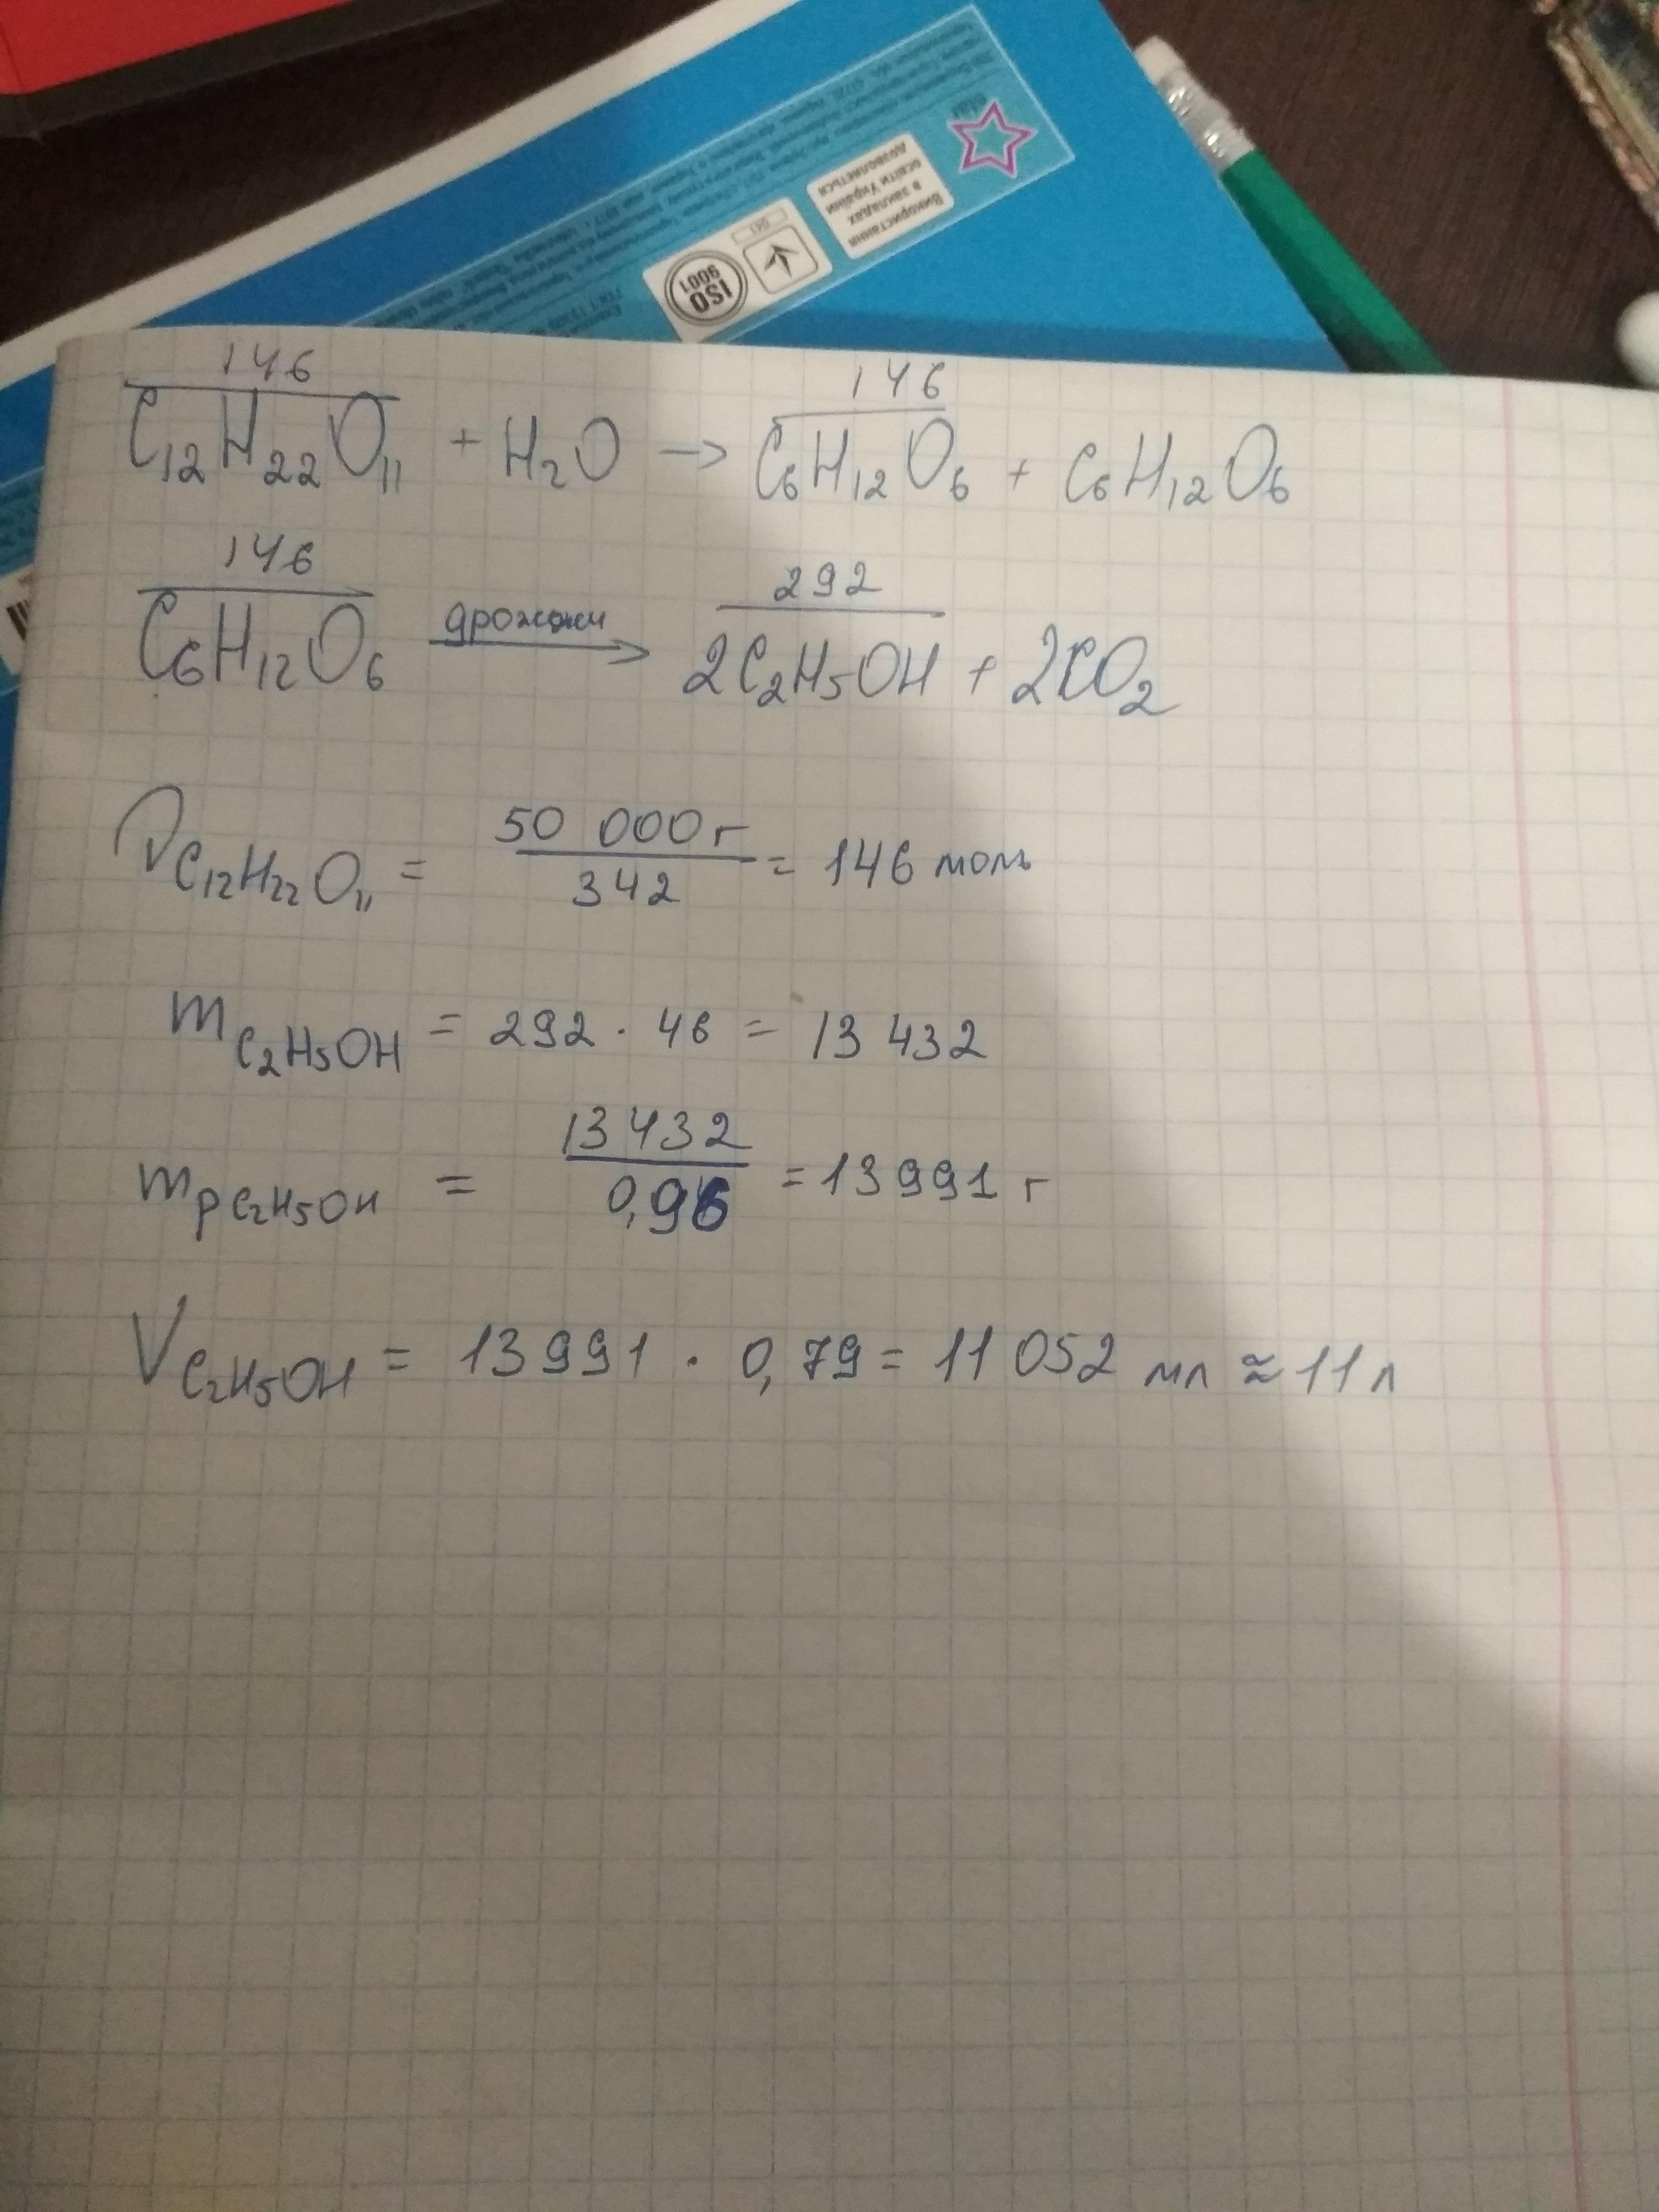 Використання
в закладах
освіти України
дозволяється
ISO
9001
146 146
C₁₂H₂₂O₁₁ + H₂O → C₆H₁₂O₆ + C₆H₁₂O₆
146 292
C₆H₁₂O₆ дрожжи → 2C₂H₅OH + 2CO₂
ν C₁₂H₂₂O₁₁ = 50 000 г / 342 = 146 моль
m C₂H₅OH = 292 · 46 = 13 432
m р C₂H₅OH = 13 432 / 0,96 = 13991 г
V C₂H₅OH = 13991 · 0,79 = 11 052 мл ≈ 11 л